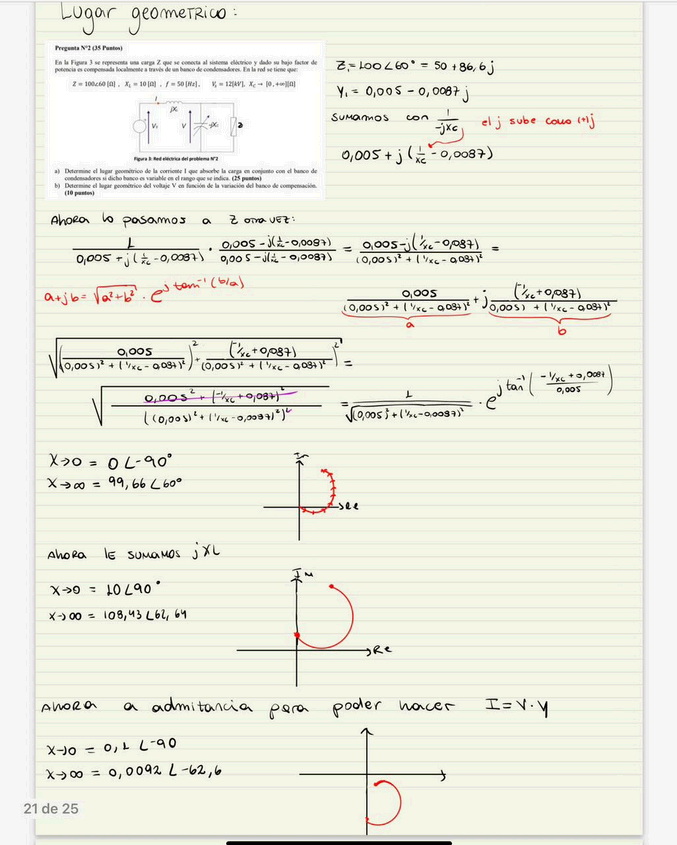 Lugar geometrico:
Pregunta N°2 (35 Puntos)
En la Figura 3 se representa una carga Z que se conecta al sistema eléctrico y dado su bajo factor de
potencia es compensada localmente a través de un banco de condensadores. En la red se tiene que:
Z = 100∠60 [Ω] , X_L = 10 [Ω] , f = 50 [Hz], V₁ = 12[kV], X_C → [0, +∞][Ω]
jXL
V₁ V -jXc Z
Figura 3: Red eléctrica del problema N°2
a) Determine el lugar geométrico de la corriente I que absorbe la carga en conjunto con el banco de
condensadores si dicho banco es variable en el rango que se indica. (25 puntos)
b) Determine el lugar geométrico del voltaje V en función de la variación del banco de compensación.
(10 puntos)
Z₁=100∠60° = 50 +86,6j
Y₁ = 0,005 - 0,0087j
sumamos con 1/-jXc el j sube como (+)j
0,005 + j(1/xc - 0,0087)
Ahora lo pasamos a Z otra vez:
1/(0,005 + j(1/xc - 0,0087)) · (0,005 - j(1/xc - 0,0087))/(0,005 - j(1/xc - 0,0087)) = (0,005 - j(1/xc - 0,087))/((0,005)² + (1/xc - 0,087)²) =
a+jb = √(a²+b²) · e^(j tan⁻¹(b/a))
0,005/((0,005)² + (1/xc - 0,087)²) + j (-1/xc + 0,087)/((0,005) + (1/xc - 0,087)²)
a b
√((0,005/((0,005)² + (1/xc - 0,087)²))² + ((-1/xc + 0,087)/((0,005)² + (1/xc - 0,087)²))²) =
√((0,005² + (-1/xc + 0,087)²)/((0,005)² + (1/xc - 0,0087)²)²) = 1/√((0,005)² + (1/xc - 0,0087)²) · e^(j tan⁻¹((-1/xc + 0,0087)/0,005))
X→0 = 0 ∠-90°
X→∞ = 99,66∠60°
Im
Re
Ahora le sumamos jXL
X→0 = 10∠90°
X→∞ = 108,43∠62,64
Im
Re
Ahora a admitancia para poder hacer I=V·Y
X→0 = 0,1 ∠-90
X→∞ = 0,0092 ∠-62,6
21 de 25